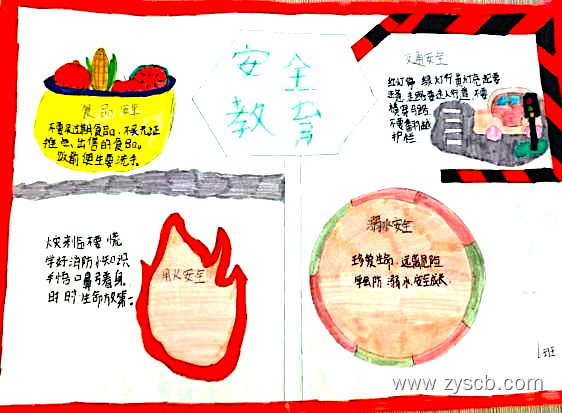 安全
教育
食品安全
不要买过期食品,不买无证
摊点出售的食品。
饭前便后要洗手
交通安全
红灯停 绿灯行 黄灯亮起要
走道 走路要走人行道 不要
横穿马路
不要翻越
护栏
火灾来临不要慌
学好消防小知识
手捂口鼻弓着身
时时生命放第一
用火安全
溺水安全
珍爱生命 远离危险
学会防溺水 安全成长
班
www.zyscb.com